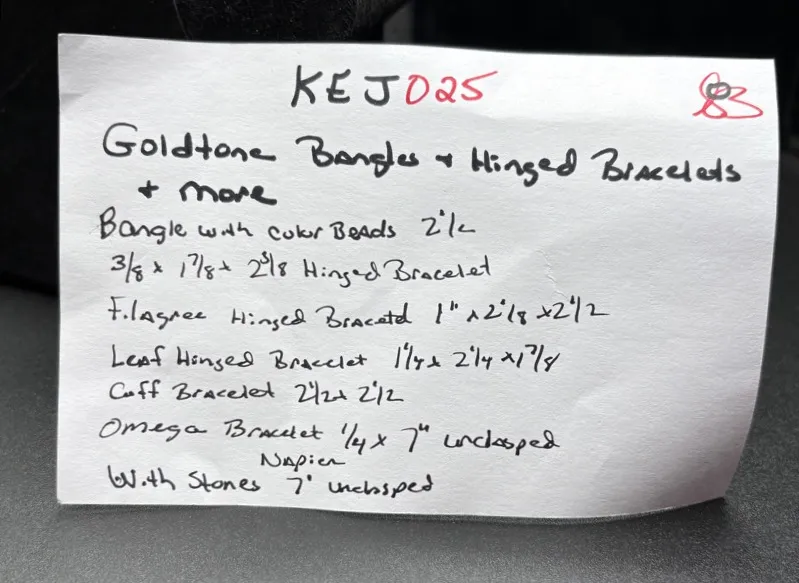 KEJ025
83
Goldtone Bangles + Hinged Bracelets
+ more
Bangle with color Beads 2 1/2
3/8 x 1 7/8 x 2 3/8 Hinged Bracelet
Filagree Hinged Bracelet 1" x 2 1/8 x 2 1/2
Leaf Hinged Bracelet 1 1/4 x 2 1/4 x 1 7/8
Cuff Bracelet 2 1/2 x 2 1/2
Omega Bracelet 1/4 x 7" unclasped
Napier
With Stones 7" unclasped